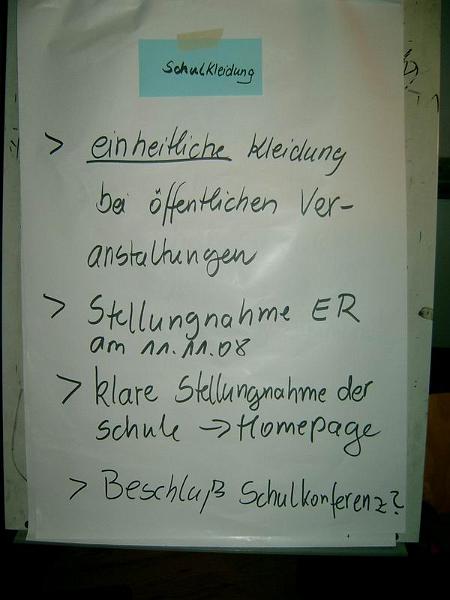 Schulkleidung
> einheitliche Kleidung
bei öffentlichen Ver-
anstaltungen
> Stellungnahme ER
am 11.11.08
> klare Stellungnahme der
Schule → Homepage
> Beschluß Schulkonferenz?